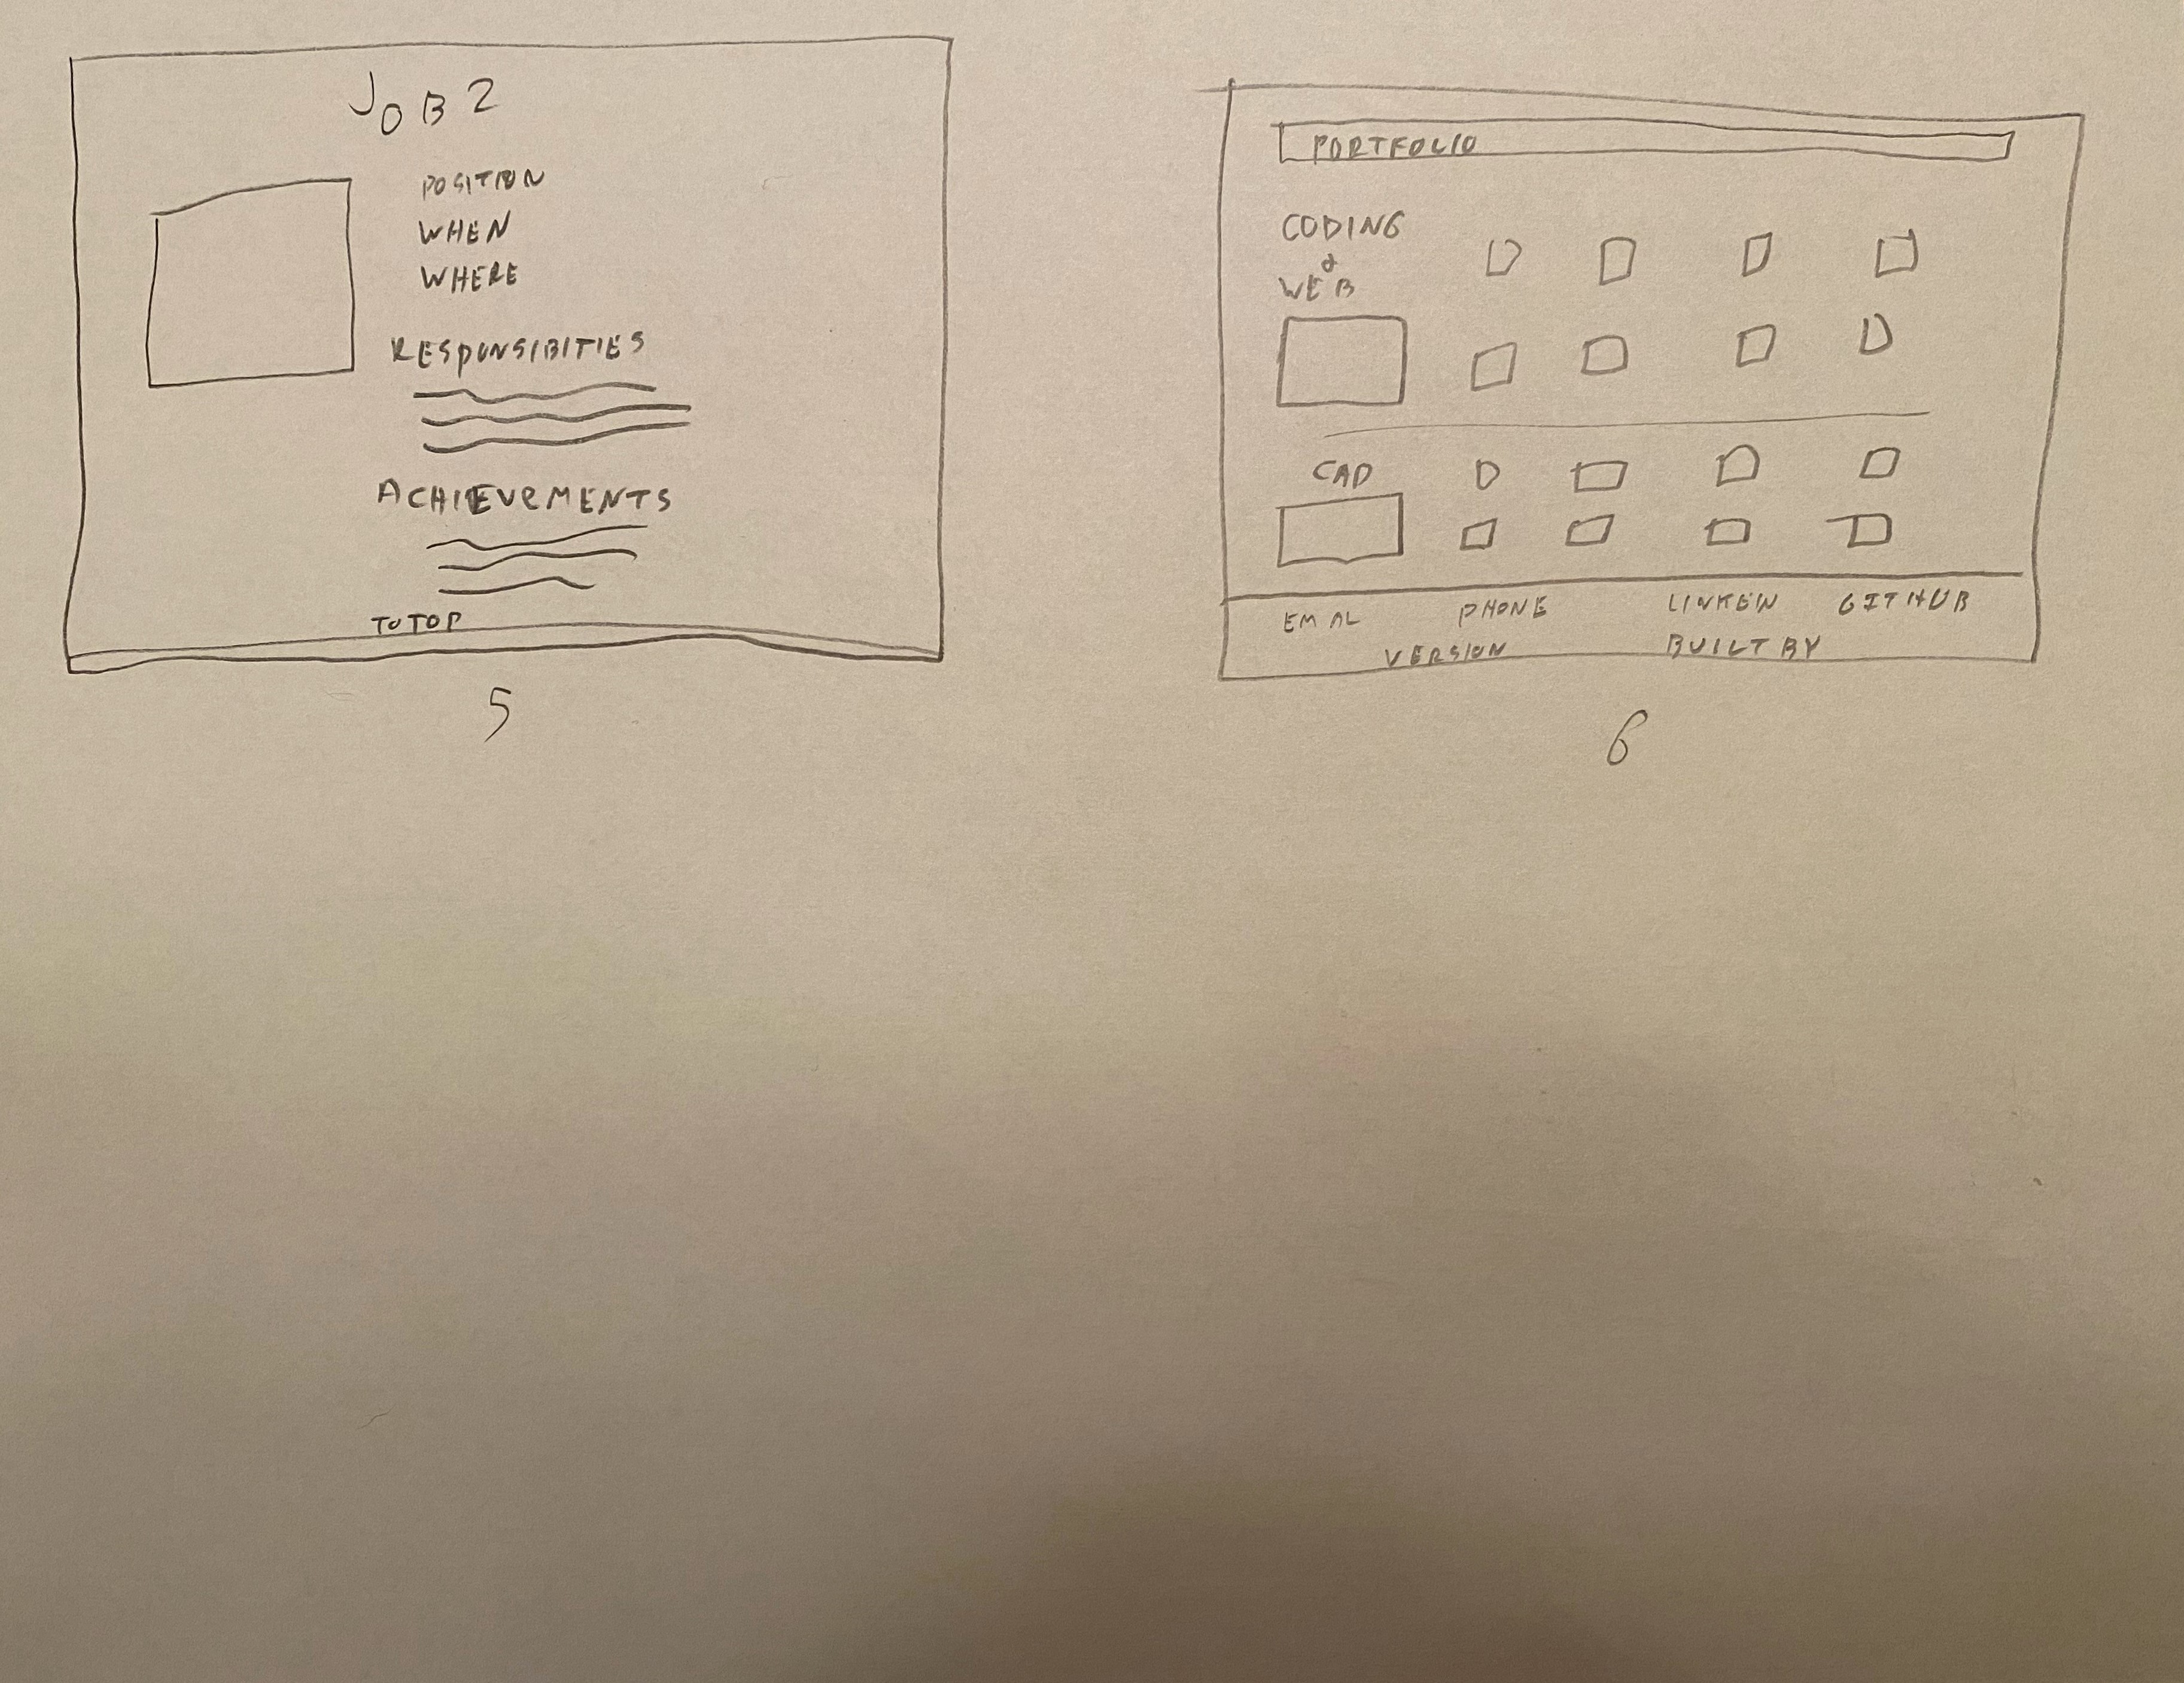 JOB 2
POSITION
WHEN
WHERE
RESPONSIBITIES
ACHIEVEMENTS
TO TOP
5
PORTFOLIO
CODING
&
WEB
CAD
EMAL PHONE LINKEIN GITHUB
VERSION BUILT BY
6